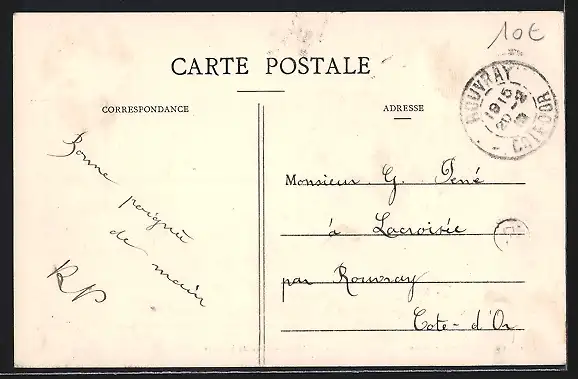 10€
CARTE POSTALE
CORRESPONDANCE
ADRESSE
ROUVRAY
1915
20 -2
COTE D'OR
Bonne poignée
de main
RP
Monsieur G. Pené
à Lacroisée
par Rouvray
Cote-d'Or